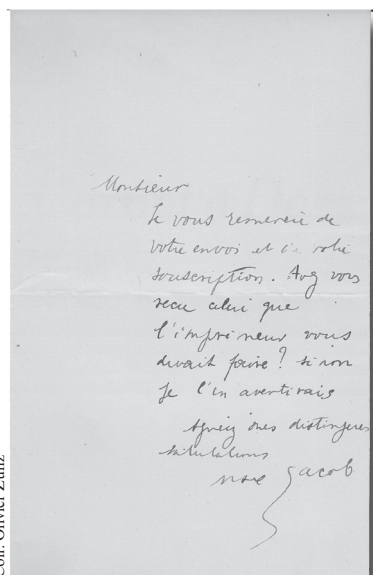 Monsieur
Je vous remercie de
votre envoi et de votre
souscription. Avez vous
recu celui que
l'imprimeur vous
devait faire ? si non
je l'en avertirais
Agréez mes distinguées
salutations
Max Jacob
Coll. Olivier Zunz